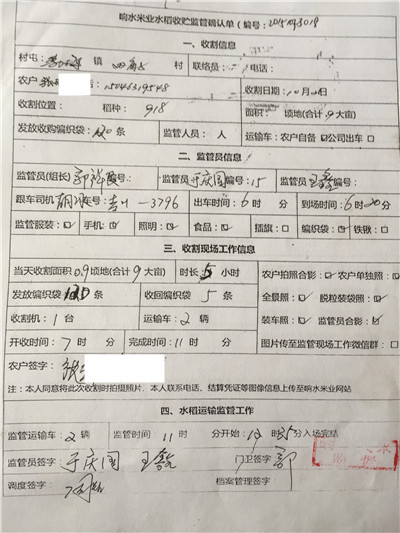 响水米业水稻收贮监管确认单（编号：2015103019
一、收割信息
村屯： 镇 村 联络员： 电话：
农户 ：15046319548 收割日期10月06日
收割位置： 稻种：918 面积： 顷地(合计9大亩)
发放收购编织袋：120条 监管人员： 人 运输车：农户自备☑公司出车□
二、监管员信息
监管员(组长) 号： 监管员于庆国编号：15 监管员王鑫编号：
跟车司机 号： —3796 出车时间：6时 分 到场时间：6时20分
监管服装：☑ 手机：☑ 照明：☑ 食品：☑ 插旗：□ 编织袋：☑ 铁锹：□
三、收割现场工作信息
当天收割面积0.9顷地(合计9大亩) 时长：5小时 农户拍照合影：☑ 农户单独照：□
发放编织袋120条 收回编织袋 5条 全景照：☑ 脱粒装袋照：☑
收割机：1台 运输车：2辆 装车照：☑ 监管员合影：☑
开收时间：7时 分 完成时间：11时 分 图片传至监管现场工作微信群：□
农户签字：
注：本人同意将此次收割时拍摄照片、本人联系电话、结算凭证等图像信息上传至响水米业网站
四、水稻运输监管工作
监管运输车：2辆 监管时间：11时 分开始：12时35分入场完结
监管员签字：于庆国 王鑫 门卫签字：郭
调度签字： 档案管理签字：